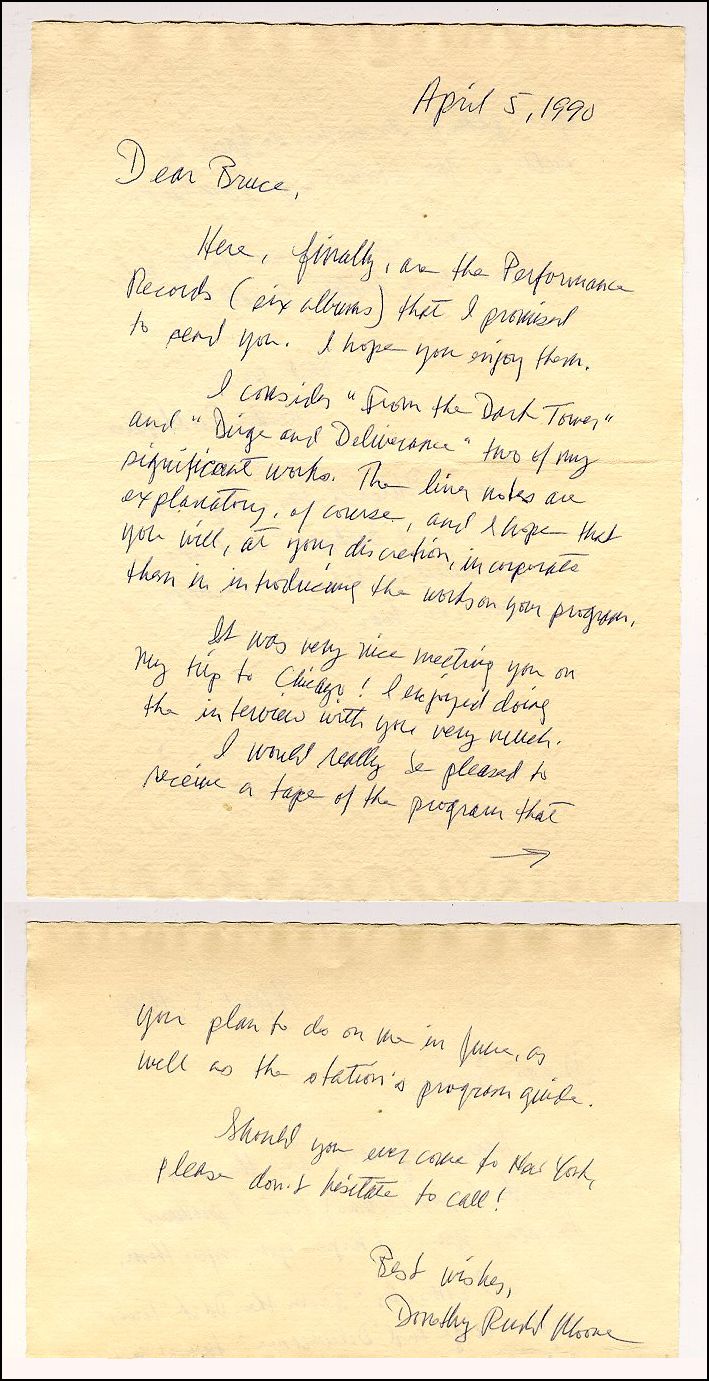 April 5, 1990
Dear Bruce,
Here, finally, are the Performance
Records (six albums) that I promised
to send you. I hope you enjoy them.
I consider "From the Dark Tower"
and "Dirge and Deliverance" two of my
significant works. The liner notes are
explanatory, of course, and I hope that
you will, at your discretion, incorporate
them in introducing the works on your program.
It was very nice meeting you on
my trip to Chicago! I enjoyed doing
the interview with you very much.
I would really be pleased to
receive a tape of the program that
→
you plan to do on me in June, as
well as the station's program guide.
Should you ever come to New York,
please don't hesitate to call!
Best wishes,
Dorothy Rudd Moore